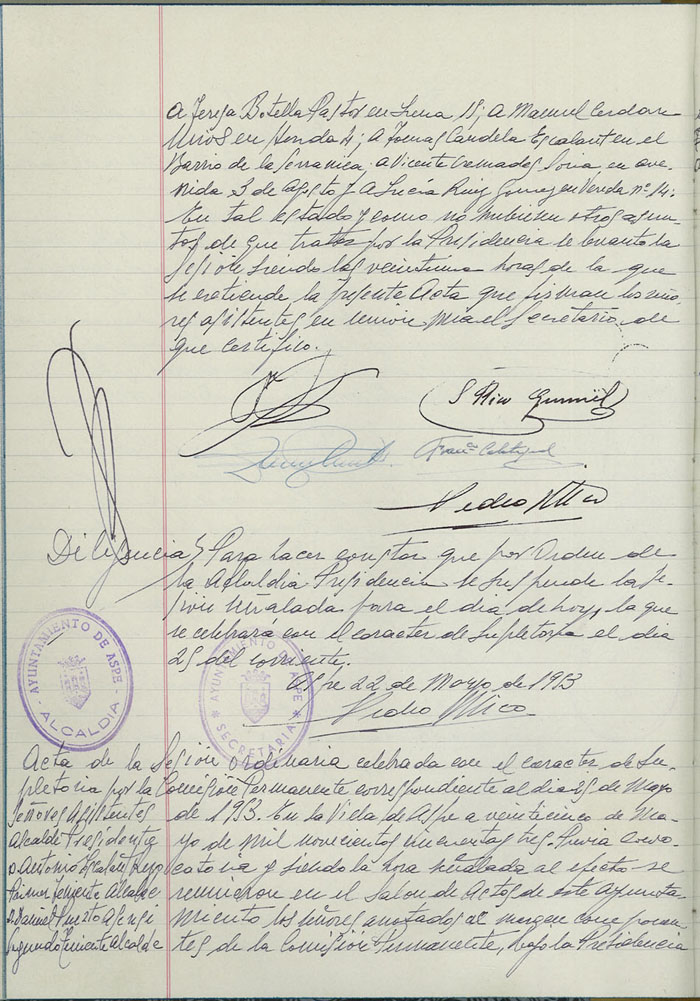 A Teresa Botella Pastor en Lrena 15; A Manuel Cerdan
en Honda 4; A Tomas Candela Escalant en el
Barrio de la Ceramica; a Vicente Cremades Soria en ave-
nida 3 de Agosto 7. A Lucia Ruiz Gomez en Vereda nº 14.
En tal estado y como no hubiesen otros asun-
tos de que tratar por la Presidencia se levanto la
Sesión siendo las veintiuna horas de la que
se extiende la presente Acta que firman los seño-
res asistentes en union mia el Secretario de
que certifico.
Pedro Mico
Diligencia Para hacer constar que por Orden de
la Alcaldia Presidencia se suspende la se-
sión señalada para el dia de hoy, la que
se celebrará con el caracter de Supletoria el dia
25 del corriente.
Aspe 22 de Mayo de 1953
Pedro Mico
AYUNTAMIENTO DE ASPE
ALCALDIA
AYUNTAMIENTO DE ASPE
SECRETARIA
Acta de la Sesión Ordinaria celebrada con el caracter de Su-
pletoria por la Comisión Permanente correspondiente al dia 25 de Mayo
de 1953. En la Villa de Aspe a veinticinco de Ma-
yo de Mil novecientos cincuenta y tres. Previa convo-
catoria y siendo la hora señalada al efecto se
reunieron en el Salon de Actos de este Ayunta-
miento los señores anotados al margen componen-
tes de la Comisión Permanente, bajo la Presidencia
Señores Asistentes
Alcalde Presidente
D. Antonio
Primer Teniente Alcalde
D. Manuel Puerto Asensi
Segundo Teniente Alcalde